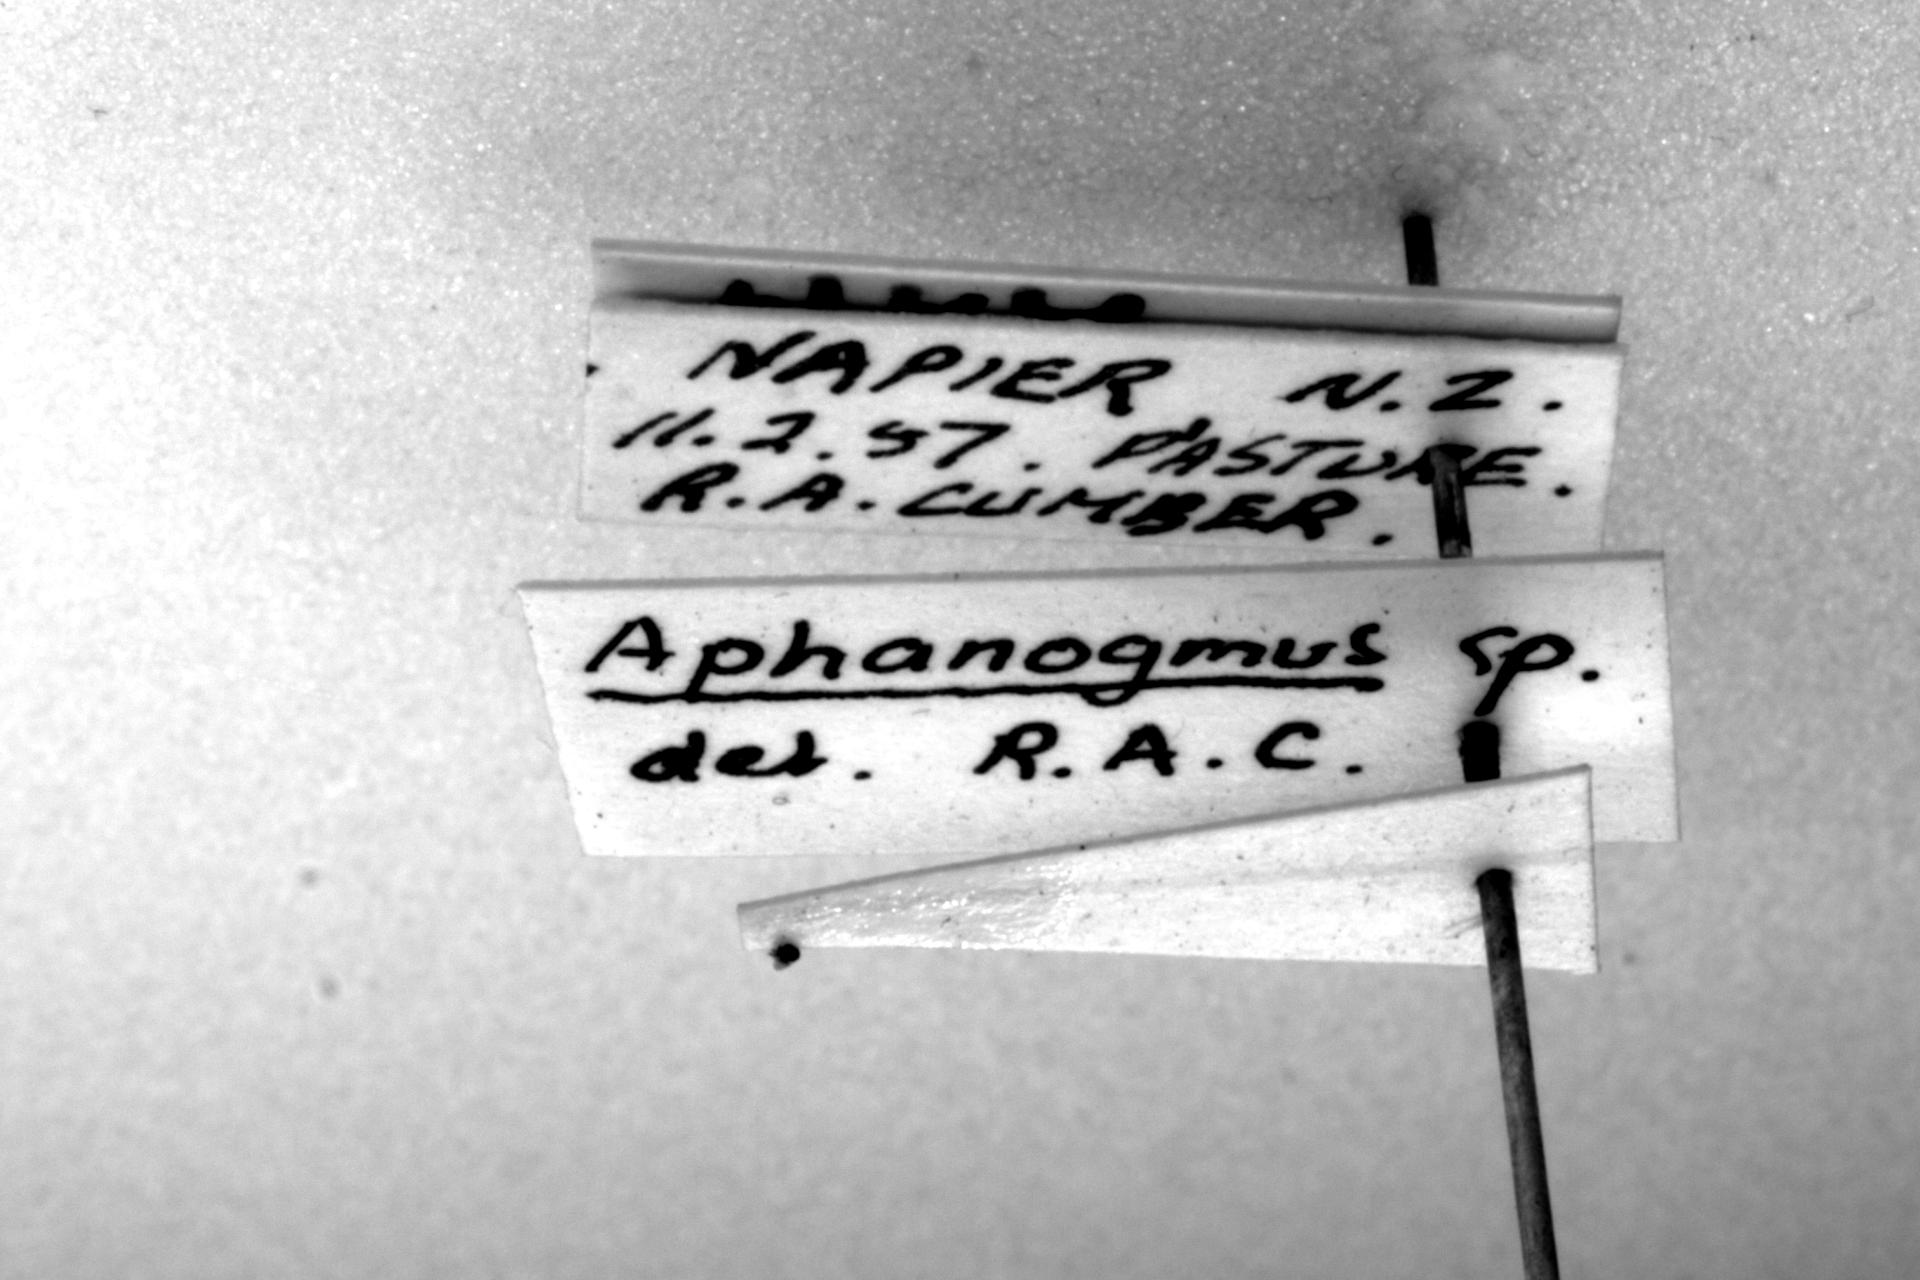 NAPIER N.Z.
11.2.57. PASTURE.
R.A. CUMBER.
Aphanogmus sp.
det. R.A.C.